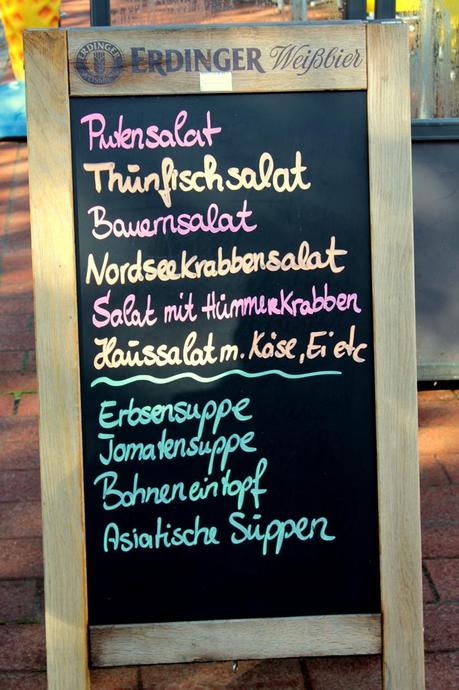 ERDINGER Weißbier
Putensalat
Thunfischsalat
Bauernsalat
Nordseekrabbensalat
Salat mit Hummerkrabben
Haussalat m. Käse, Ei etc
Erbsensuppe
Tomatensuppe
Bohneneintopf
Asiatische Suppen